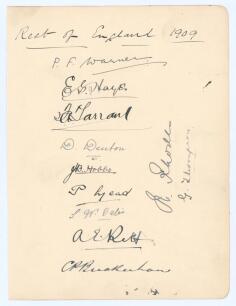 Rest of England 1909
P. F. Warner
E G Hayes
F A Tarrant
D. Denton
J B Hobbs
P Mead
A E Relf
C P Buckenham
W. Rhodes
G. Thompson